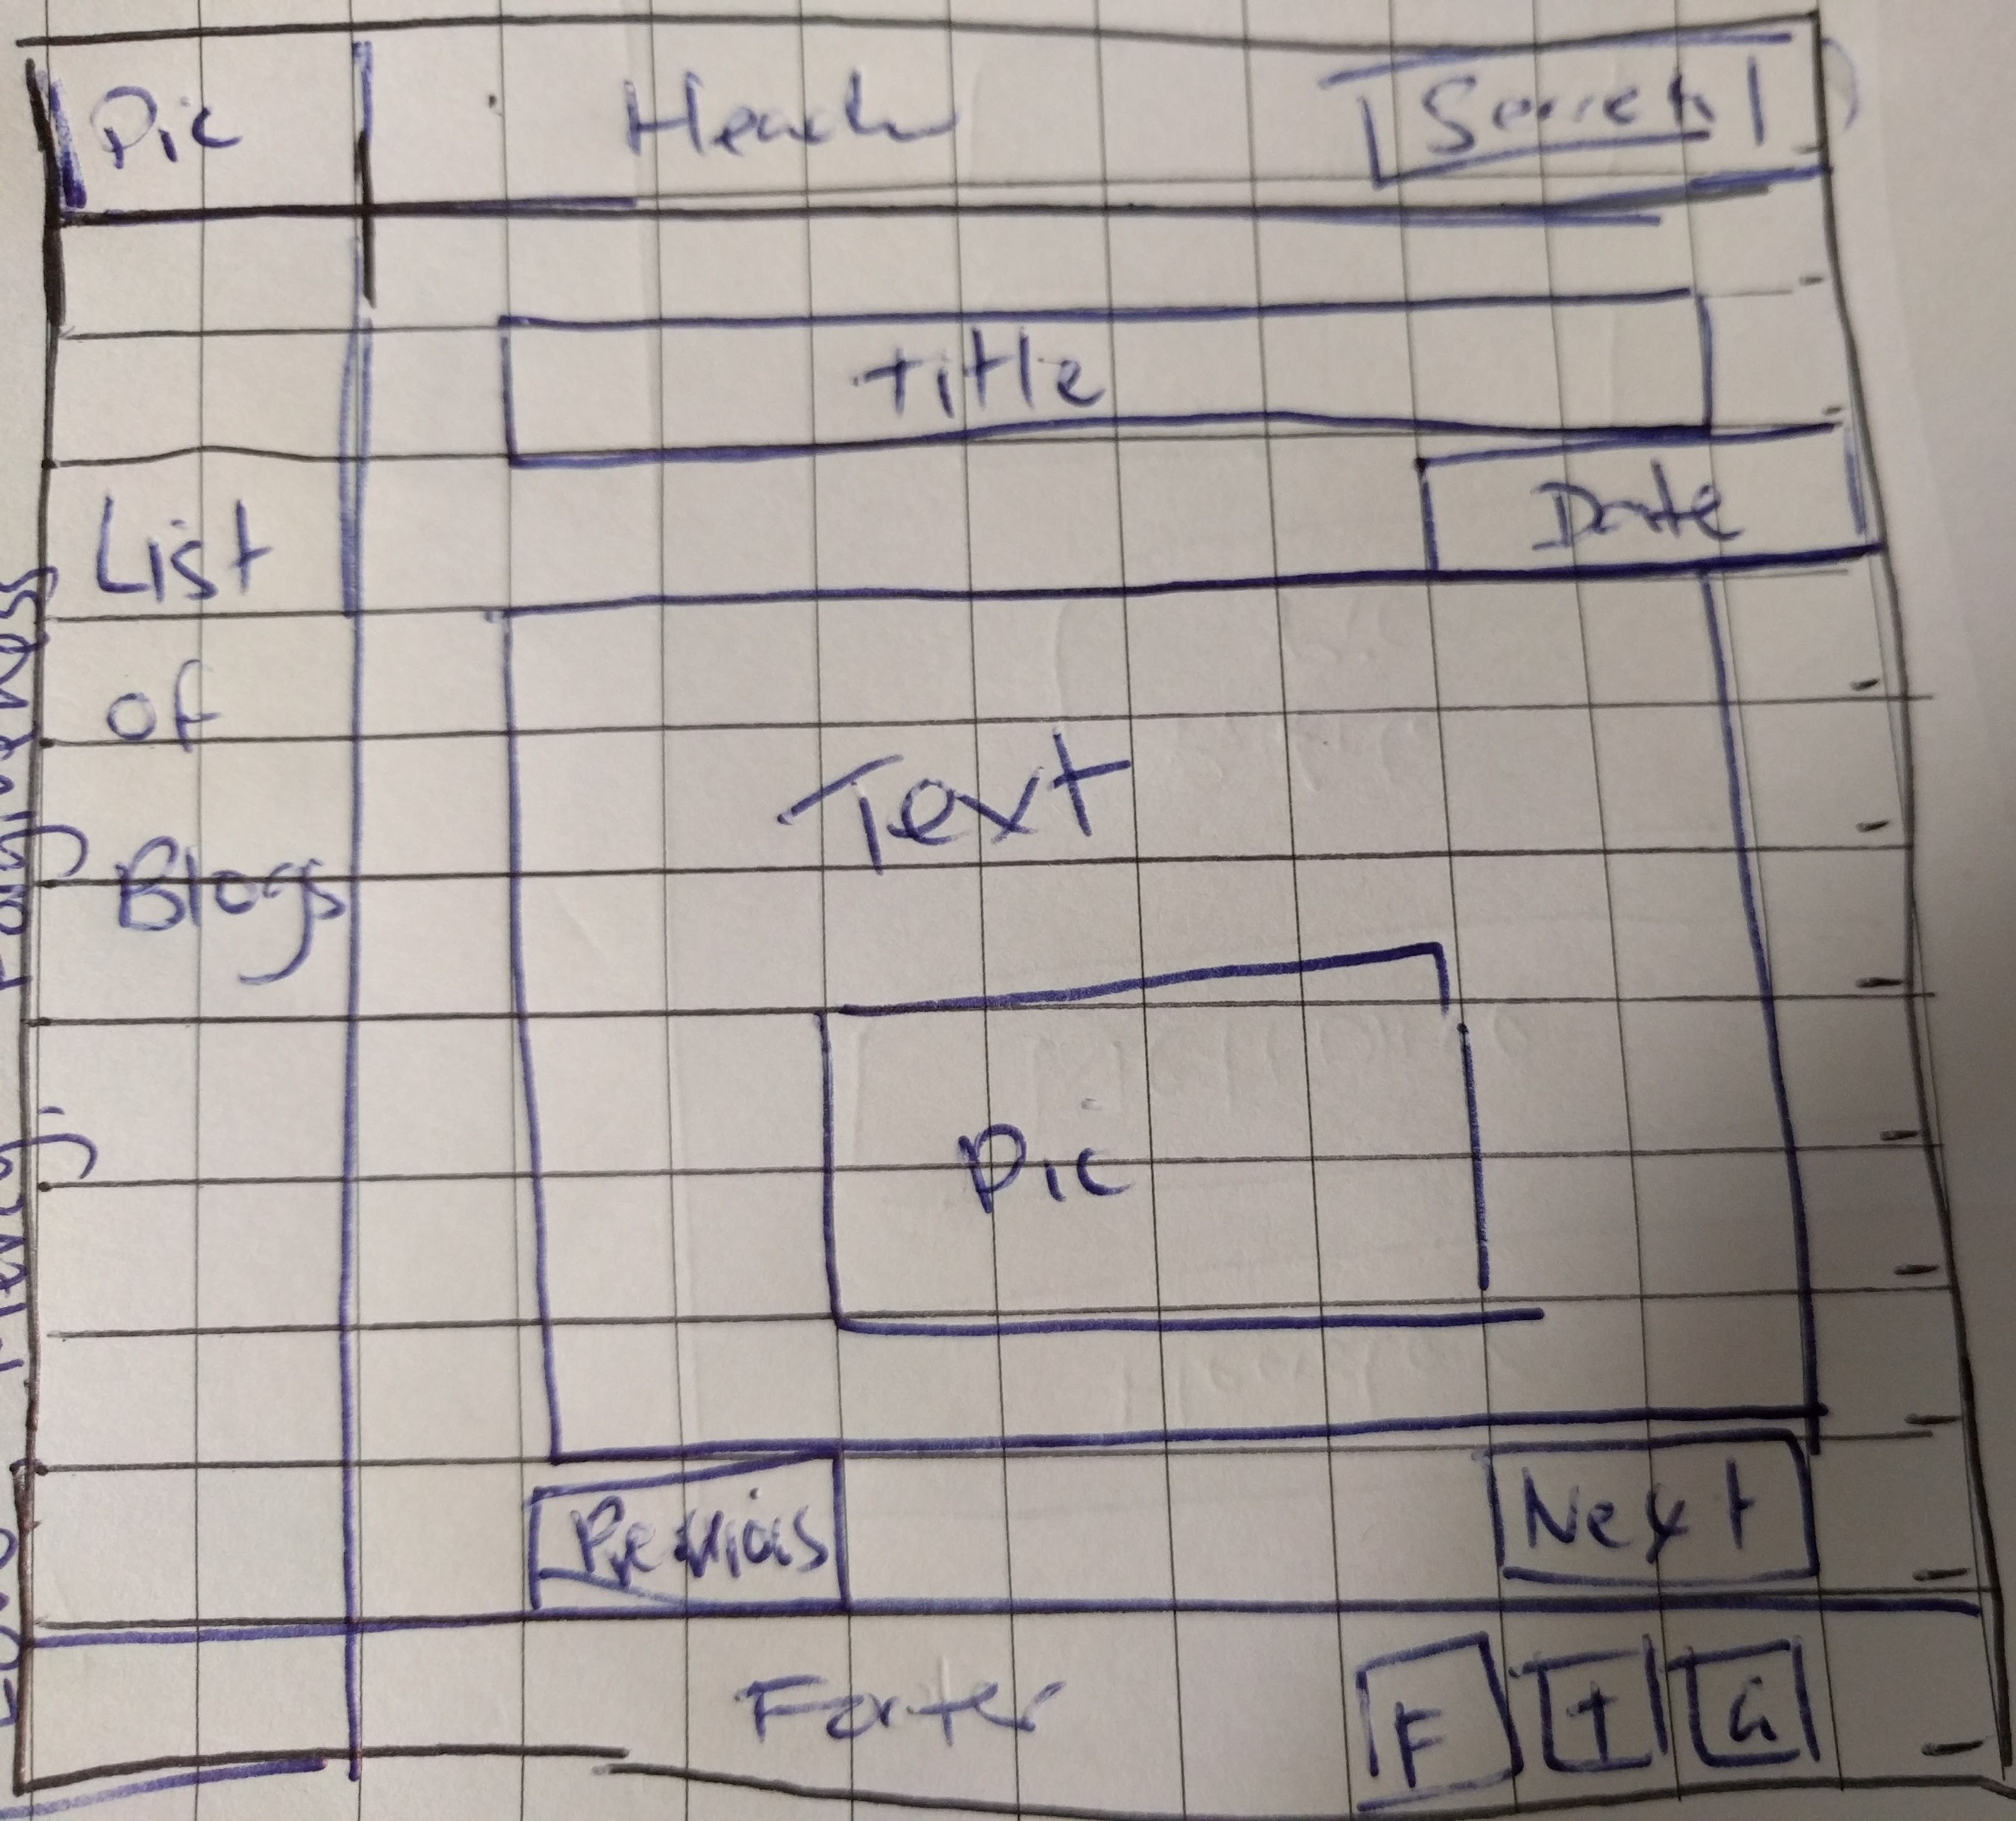 Pic
Header
Search
Title
Date
List
of
Blogs
Text
Pic
Previous
Next
Footer
F
t
G